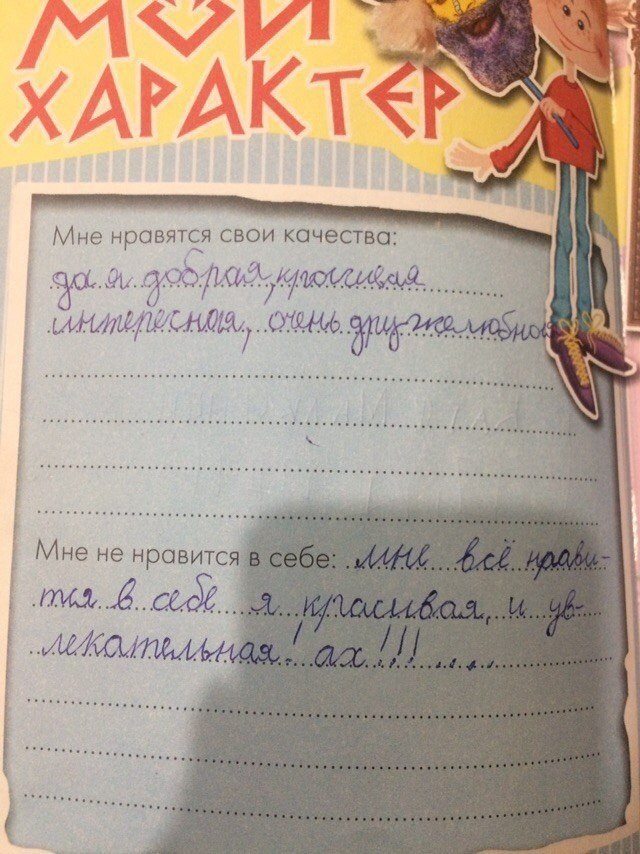 МОЙ
ХАРАКТЕР
Мне нравятся свои качества:
да я добрая, красивая
интересная, очень дружелюбная
Мне не нравится в себе: мне всё нрави-
тся в себе я красивая, и ув-
лекательная! ах!!!.....